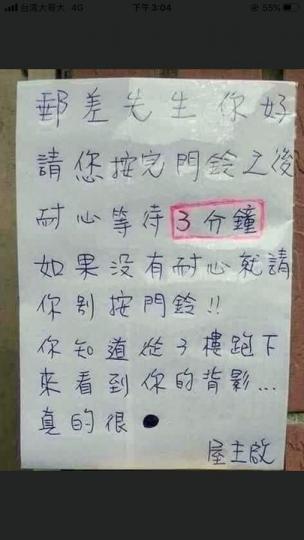 台灣大哥大 4G
下午3:04
55%
郵差先生你好
請您按完門鈴之後
耐心等待3分鐘
如果没有耐心就請
你别按門鈴!!
你知道從3樓跑下
來看到你的背影...
真的很●
屋主啟